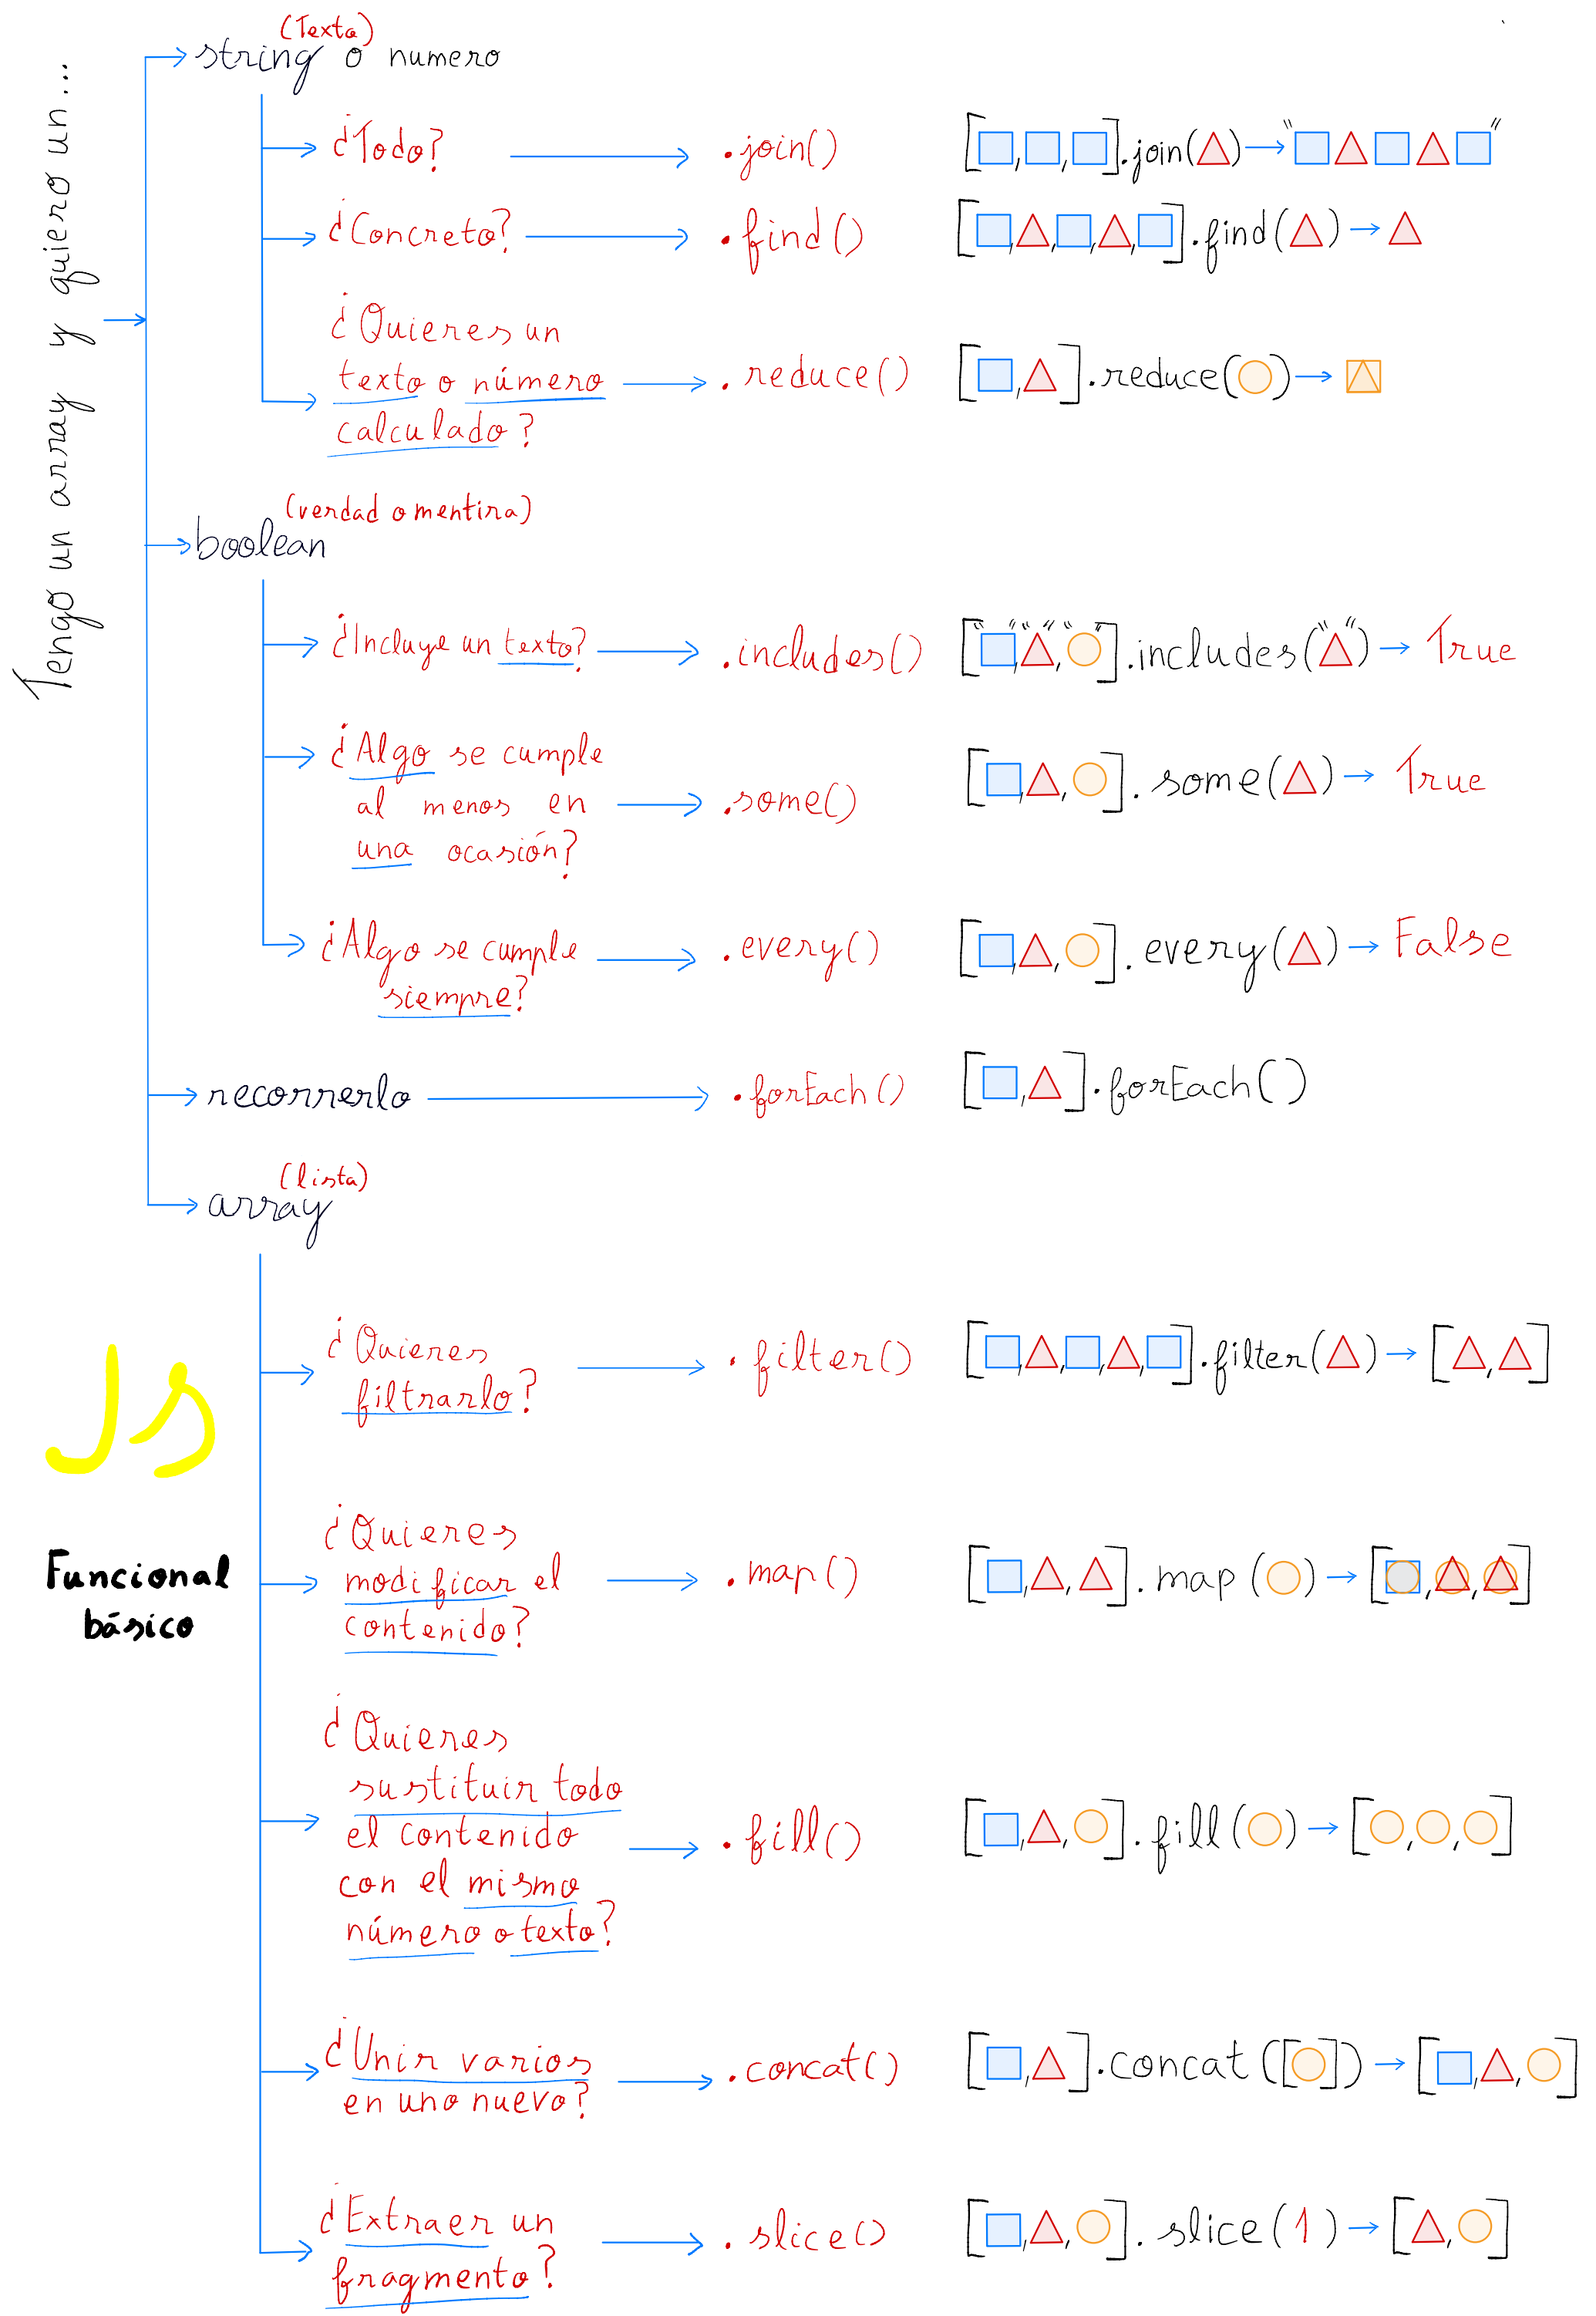 Tengo un array y quiero un...
(Texto)
string o numero
¿Todo?
.join()
[ , , ].join( ) " "
¿Concreto?
.find()
[ , , , , ].find( )
¿Quieres un
texto o número
calculado?
.reduce()
[ , ].reduce( )
(verdad o mentira)
boolean
¿Incluye un texto?
.includes()
[" "," "," "].includes(" ") True
¿Algo se cumple
al menos en
una ocasión?
.some()
[ , , ].some( ) True
¿Algo se cumple
siempre?
.every()
[ , , ].every( ) False
recorrerlo
.forEach()
[ , ].forEach()
(lista)
array
¿Quieres
filtrarlo?
.filter()
[ , , , , ].filter( ) [ , ]
JS
Funcional
básico
¿Quieres
modificar el
contenido?
.map()
[ , , ].map( ) [ , , ]
¿Quieres
sustituir todo
el contenido
con el mismo
número o texto?
.fill()
[ , , ].fill( ) [ , , ]
¿Unir varios
en uno nuevo?
.concat()
[ , ].concat([ ]) [ , , ]
¿Extraer un
fragmento?
.slice()
[ , , ].slice(1) [ , ]